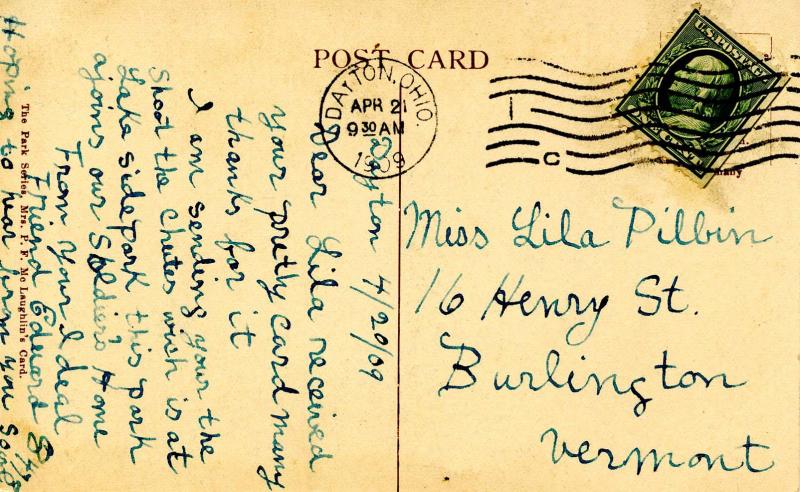 POST CARD
DAYTON, OHIO.
APR 21
9 30 AM
1909
U.S. POSTAGE
1
C
Miss Lila Pilbin
16 Henry St.
Burlington
Vermont
Dayton 4/20/09
Dear Lila received
your pretty card many
thanks for it
I am sending your the
Shoot the Chutes wich is at
Lake side Park this park
ajoins our Soldiers Home
From your Ideal
Friend Edward
Hoping to hear from you soon
The Park Series, Mrs. P. F. Mc Laughlin's Card.